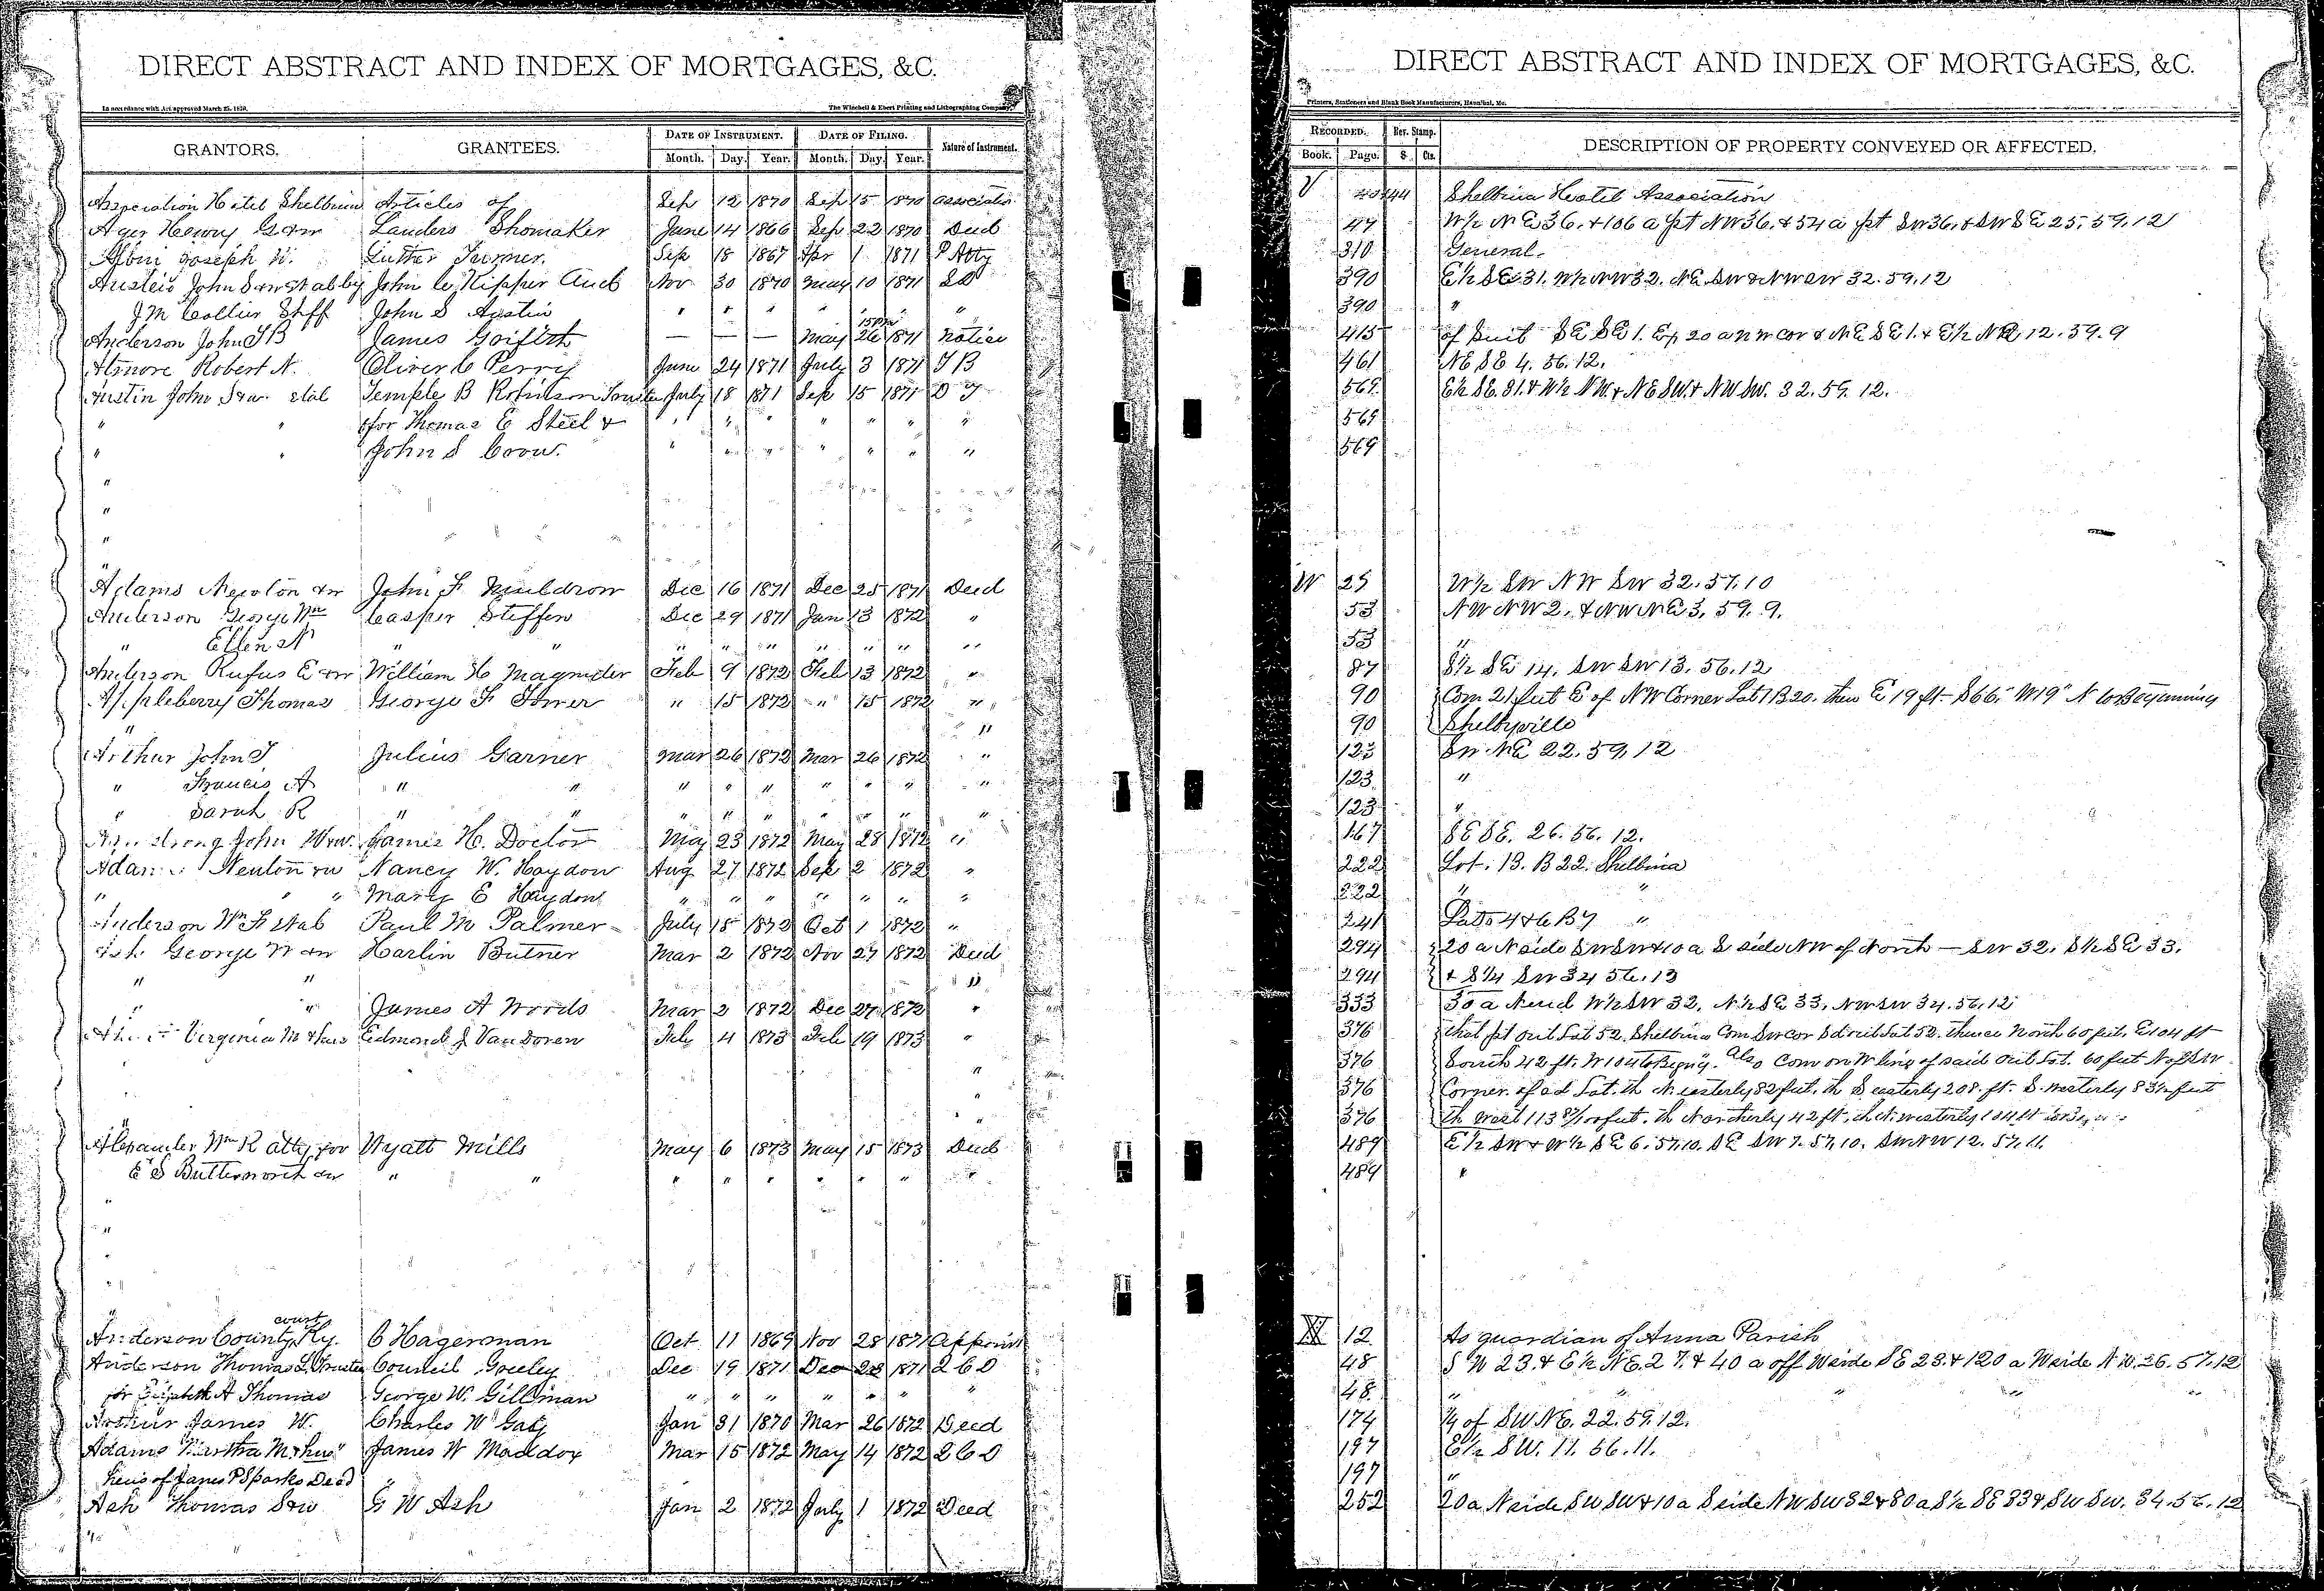 DIRECT ABSTRACT AND INDEX OF MORTGAGES, &C.
In accordance with Act approved March 25, 1870.
The Winchell & Ebert Printing and Lithographing Company,
GRANTORS. GRANTEES. DATE OF INSTRUMENT. DATE OF FILING. Nature of Instrument.
Month. Day. Year. Month. Day. Year.
Association Hotel Shelbina Articles of Sep 12 1870 Sep 15 1870 association
Ager Henry G &w Landers Shomaker June 14 1866 Sep 22 1870 Deed
Albin Joseph W. Luther Turner. Sep 18 1867 Apr 1 1871 P Atty
John S &w John C. Kipper Nov 30 1870 May 10 1871
J M Collier Shff John S Austin " " " " " "
15
Anderson John T B James Griffith — — — May 26 1871 Notice
Atmore Robert N. Oliver C Perry June 24 1871 July 3 1871 T B
Austin John S &w. etal Temple B Robinson Trustee July 18 1871 Sep 15 1871 D T
" " for Thomas E Steel & " " " " " " "
" " John S Coow. " " " " " " "
"
"
"
"
Adams Newton &w John F Muldrow Dec 16 1871 Dec 25 1871 Deed
Anderson George Wm Casper Steffen Dec 29 1871 Jan 13 1872 "
" Ellen N " " " " " " " " "
Anderson Rufus E &w William H Magruder Feb 9 1872 Feb 13 1872 "
Appleberry Thomas George F Tower " 15 1872 " 15 1872 "
" "
Arthur John T Julius Garner Mar 26 1872 Mar 26 1872 "
" Francis A " " " " " " " " "
" Sarah R " " " " " " " " "
Armstrong John W &w. James H. Doctor May 23 1872 May 28 1872 "
Adams Newton &w Nancy W. Haydon Aug 27 1872 Sep 2 1872 "
" " " Mary E Haydon " " " " " " "
Anderson Wm F Paul M Palmer July 18 1872 Oct 1 1872 "
Ash George W &w Harlin Butner Mar 2 1872 Nov 27 1872 Deed
" " "
" " James A Woods Mar 2 1872 Dec 27 1872 "
Virginia M & hus Edmond J Van Doren Feb 4 1873 Feb 19 1873 "
"
"
"
Alexander Wm R atty for Wyatt Mills May 6 1873 May 15 1873 Deed
E S Buttersworth &w " " " " " " " " "
"
"
"
"
"
court
Anderson County Ky. C Hagerman Oct 11 1869 Nov 28 1871 Appoint
Anderson Thomas L. Trustee Council Greeley Dec 19 1871 Dec 28 1871 2 C D
for Elizabeth A Thomas George W. Gillman " " " " " " "
Arthur James W. Charles W Gaty Jan 31 1870 Mar 26 1872 Deed
Adams Martha M & hus James W Maddox Mar 15 1872 May 14 1872 2 C D
heirs of James P Sparks Decd "
Ash Thomas S &w G W Ash Jan 2 1872 July 1 1872 Deed
"
DIRECT ABSTRACT AND INDEX OF MORTGAGES, &C.
Printers, Stationers and Blank Book Manufacturers, Hannibal, Mo.
RECORDED. Rev. Stamp. DESCRIPTION OF PROPERTY CONVEYED OR AFFECTED.
Book. Page. $ Cts.
V 44 Shelbina Hotel Association
47 W½ N E 36. & 106 a pt NW 36. & 54 a pt SW 36. & SW SE 25. 59. 12
310 General.
390 E½ SE 31. W½ NW 32. NE SW & NW SW 32. 59. 12
390 "
415 of Suit SE SE 1. Ex 20 a N W cor & NE SE 1. & E½ NE 12. 59. 9
461 NE SE 4. 56. 12.
569 E½ SE. 31. & W½ NW. & NE SW. & NW SW. 32. 59. 12.
569
569
W 25 W½ SW NW SW 32. 57. 10
53 NW NW 2. & NW NE 3. 59. 9.
53 "
87 S½ SE 14. SW SW 13. 56. 12
90 Com 21 feet E of NW Corner Lot 1 B 20. then E 19 ft. S 66. W 19 N to Beginning
90 Shelbyville
123 SW NE 22. 59. 12
123 "
123 "
167 SE SE. 26. 56. 12.
222 Lot. 13. B 22. Shelbina
222 " "
241 Lots 4 & 6 B 7 "
294 20 a N side SW SW & 10 a S side NW of North — SW 32. S½ SE 33.
294 & S¼ SW 34 56. 13
333 30 a N end W½ SW 32. N½ SE 33. NW SW 34. 56. 12
376 that pt out Lot 52. Shelbina Com SW cor Sd out Lot 52. thence North 60 feet. E 104 ft
376 South 42 ft. W 104 to Begn'g. Also Com on W line of said out Lot. 60 feet N of SW
376 Corner of sd Lot. th N. easterly 82 feet. th S easterly 208 ft. S. westerly 83½ feet
376 th west 113 feet. th Northerly 42 ft. th N. westerly 104 ft to
489 E½ SW & W½ SE 6. 57. 10. SE SW 7. 57. 10. SW NW 12. 57. 11.
489 "
X 12 As guardian of Anna Parish
48 S W 23. & E½ NE. 27. & 40 a off W side SE 23. & 120 a W side N W. 26. 57. 12
48 " " " " "
174 ¼ of SW NE. 22. 59. 12.
197 E½ SW. 11. 56. 11.
197 "
252 20 a N side SW SW & 10 a S side NW SW 32 & 80 a S½ SE 33 & SW SW. 34. 56. 12